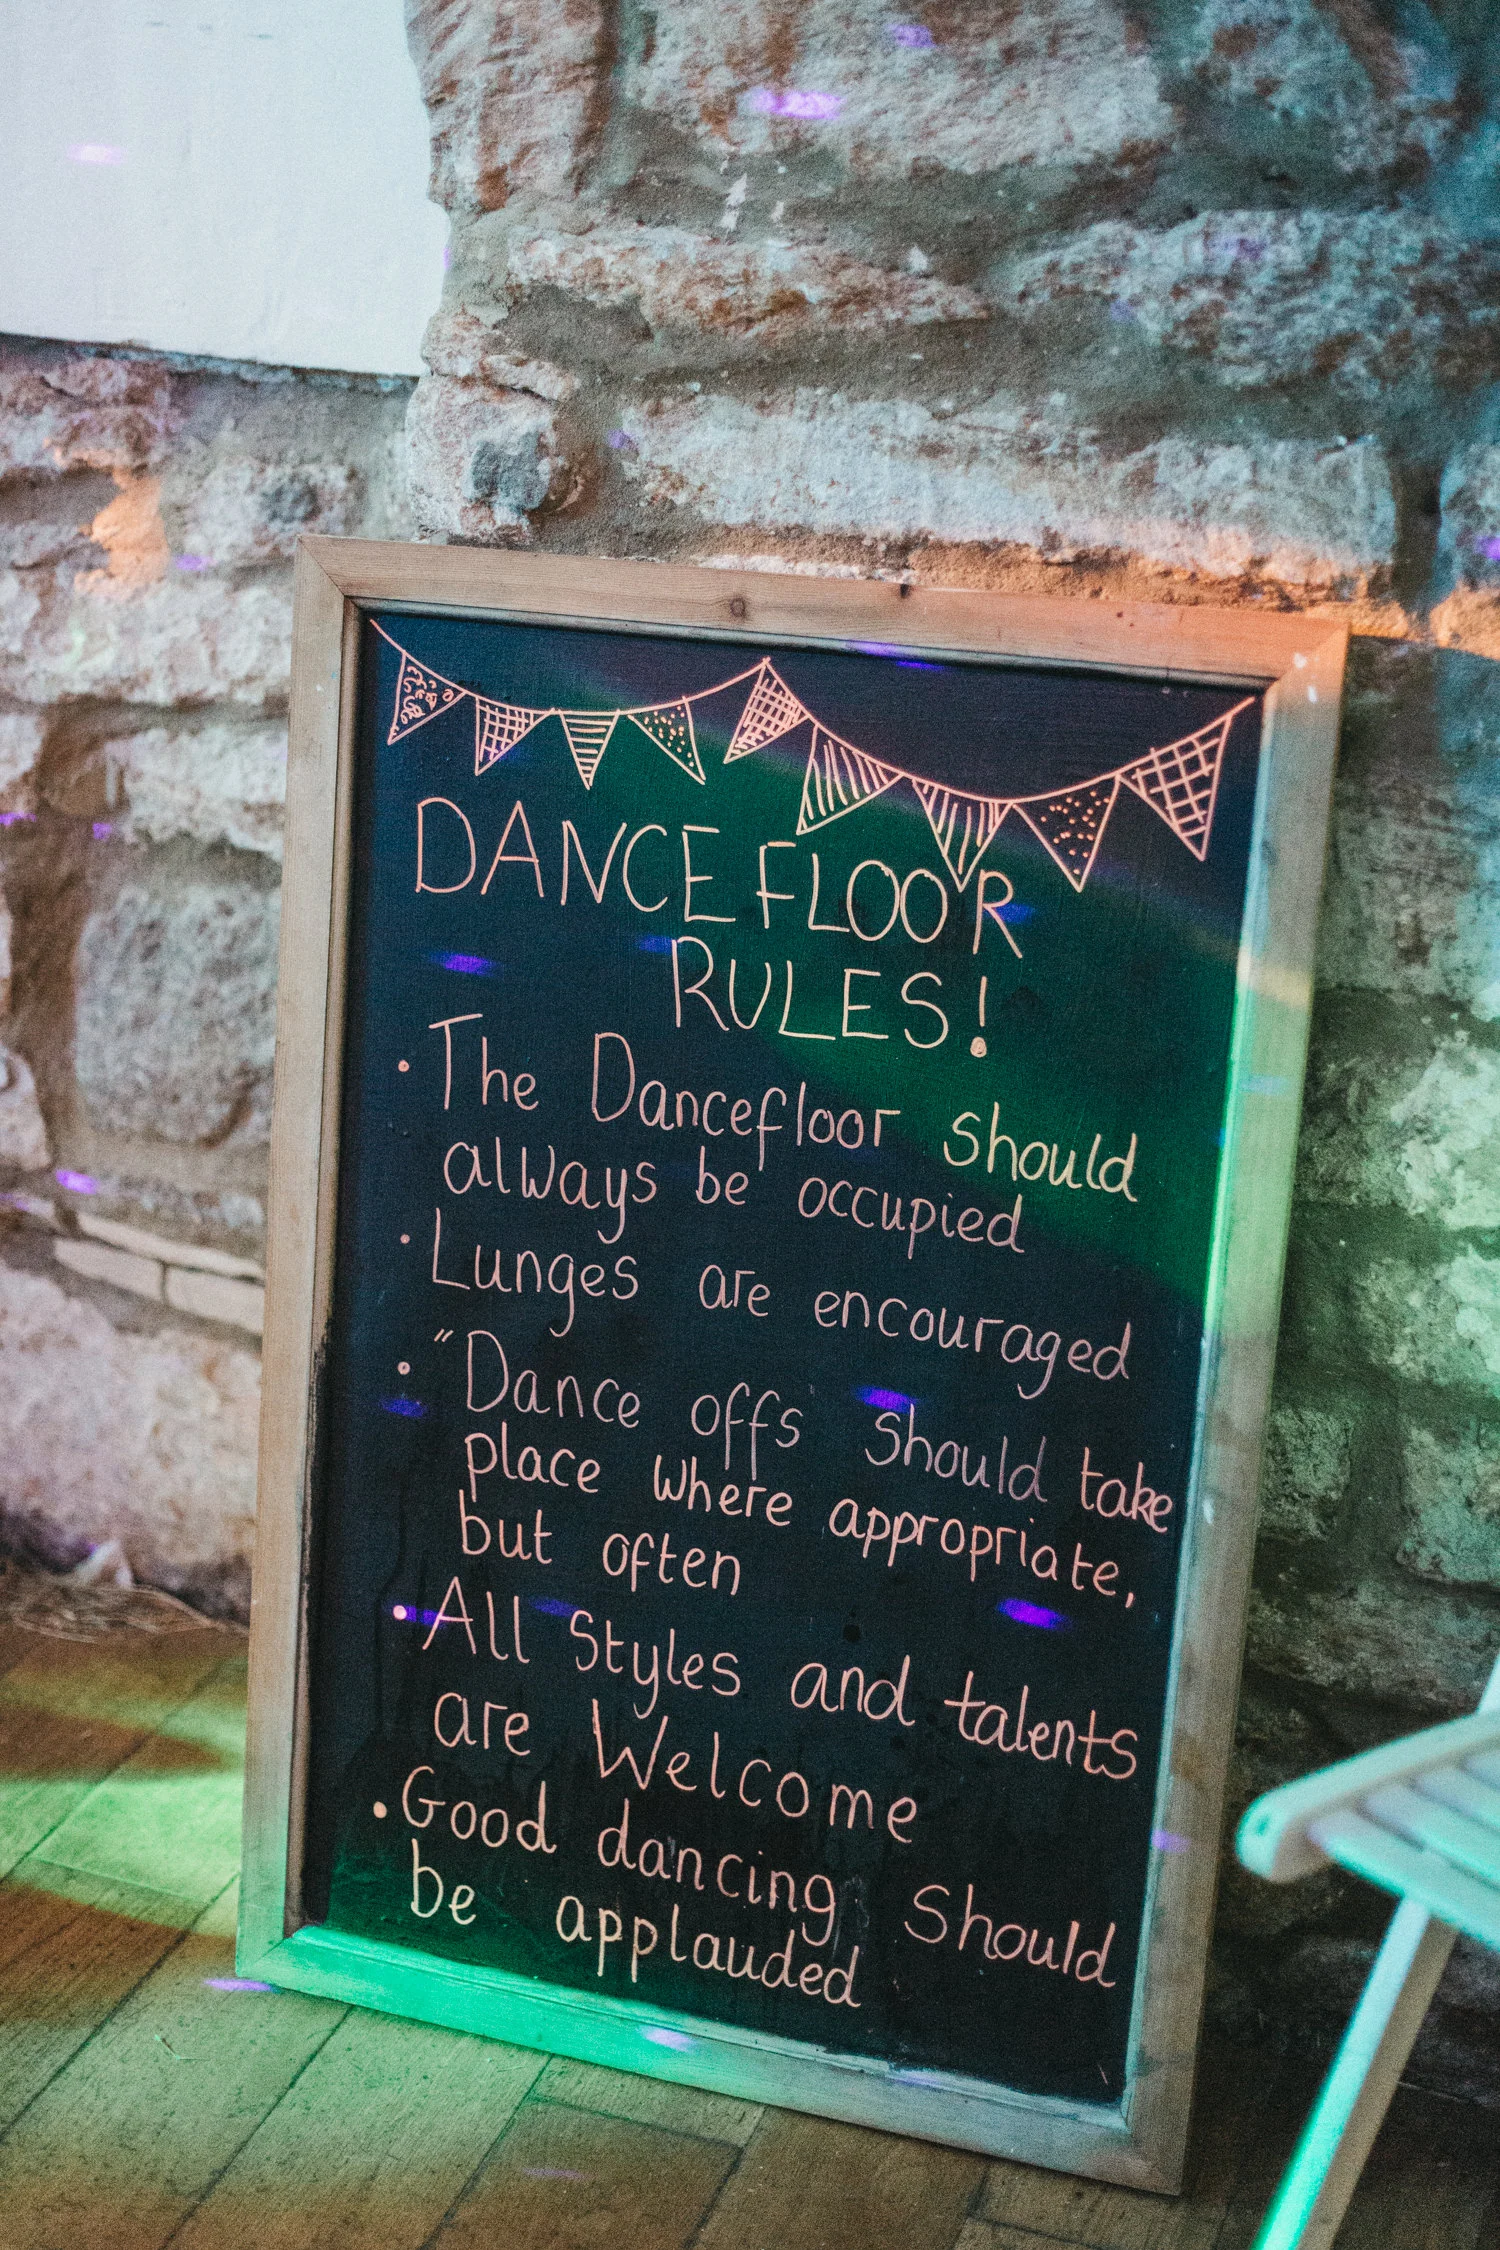 DANCEFLOOR
RULES!
• The Dancefloor should
always be occupied
• Lunges are encouraged
• "Dance offs should take
place where appropriate,
but often
• All Styles and talents
are Welcome
• Good dancing should
be applauded